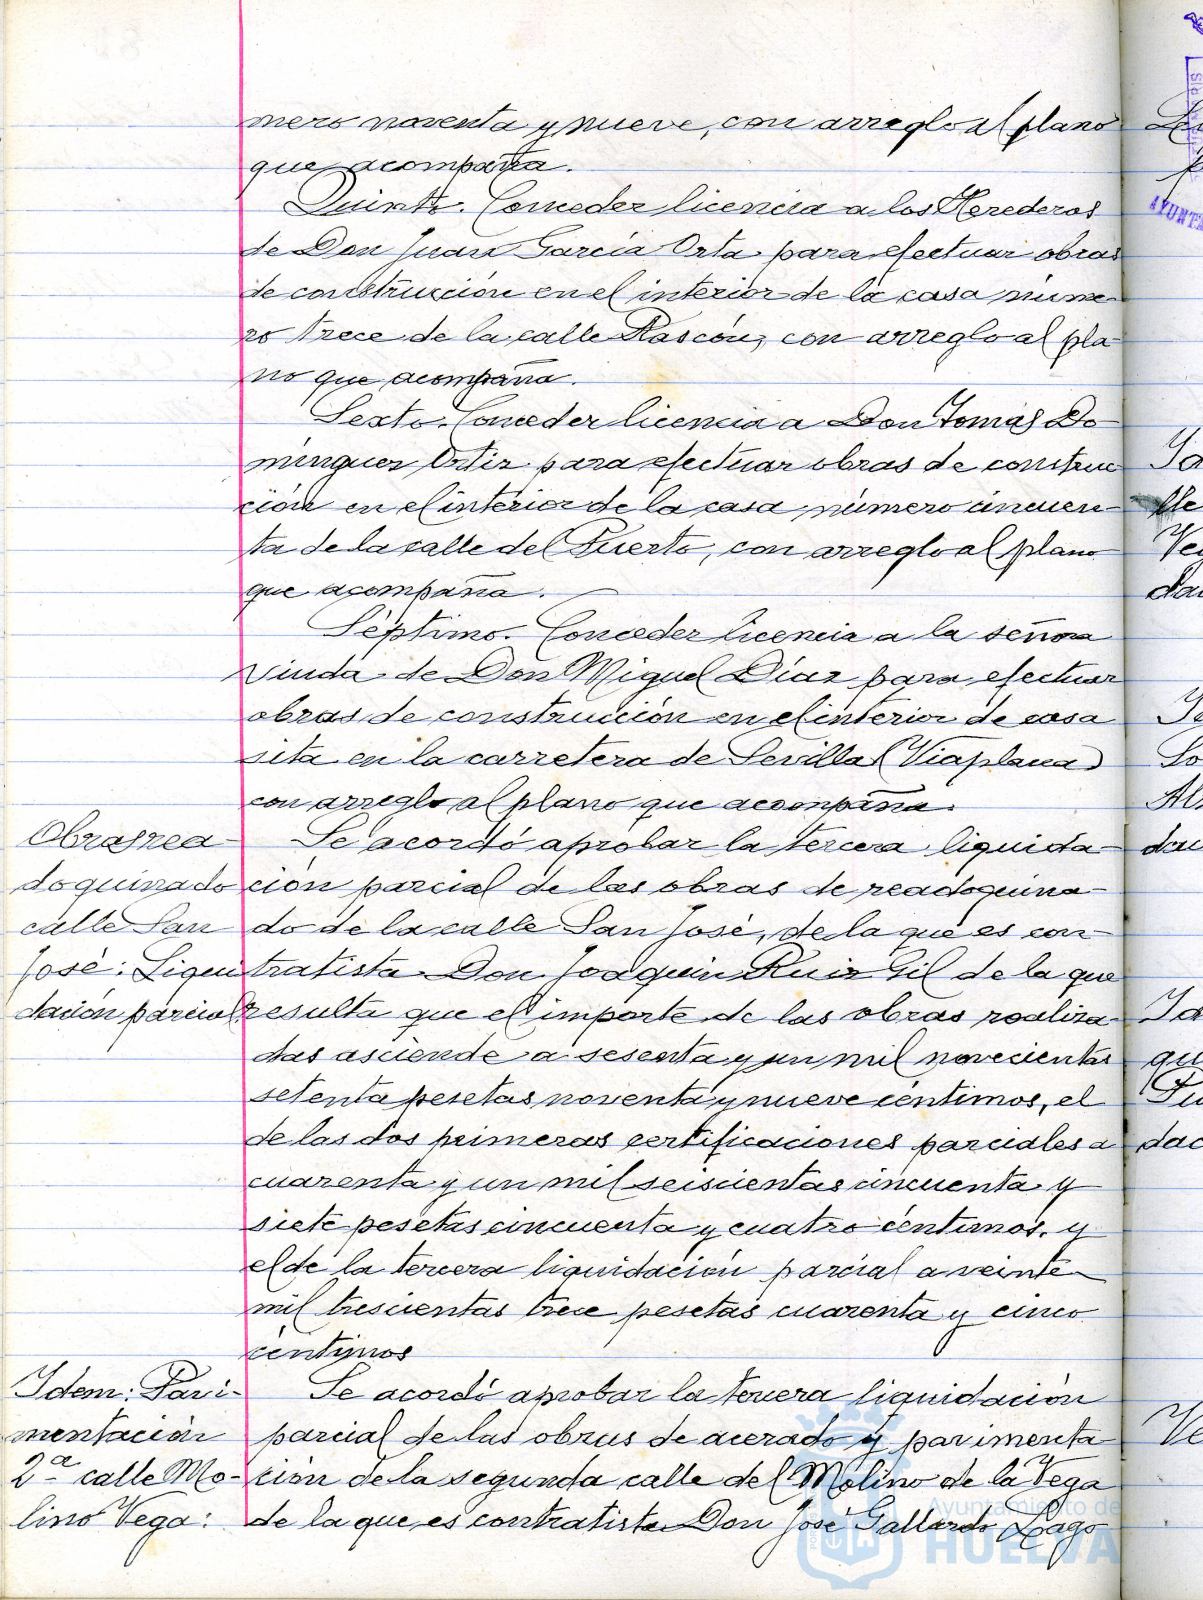 mero noventa y nueve, con arreglo al plano
que acompaña.
Quinto. Conceder licencia a los Herederos
de Don Juan García Orta para efectuar obras
de construcción en el interior de la casa núme-
ro trece de la calle Rascón, con arreglo al pla-
no que acompaña.
Sexto. Conceder licencia a Don Tomás Do-
minguez Ortiz para efectuar obras de construc-
ción en el interior de la casa número cincuen-
ta de la calle del Puerto, con arreglo al plano
que acompaña.
Séptimo. Conceder licencia a la señora
Viuda de Don Miguel Díaz para efectuar
obras de construcción en el interior de casa
sita en la carretera de Sevilla (Viaplana)
con arreglo al plano que acompaña.
Obras rea-
doquinado
calle San
José: Liqui
dación parcial
Se acordó aprobar la tercera liquida-
ción parcial de las obras de readoquina-
do de la calle San José, de la que es con-
tratista Don Joaquín Ruiz Gil de la que
resulta que el importe de las obras realiza-
das asciende a sesenta y un mil novecientas
setenta pesetas noventa y nueve céntimos, el
de las dos primeras certificaciones parciales a
cuarenta y un mil seiscientas cincuenta y
siete pesetas cincuenta y cuatro céntimos, y
el de la tercera liquidación parcial a veinte
mil trescientas trece pesetas cuarenta y cinco
céntimos
Idem: Pavi-
mentación
2ª calle Mo-
lino Vega:
Se acordó aprobar la tercera liquidación
parcial de las obras de acerado y pavimenta-
ción de la segunda calle del Molino de la Vega
de la que es contratista Don José Gallardo Lago
Ayuntamiento de
HUELVA